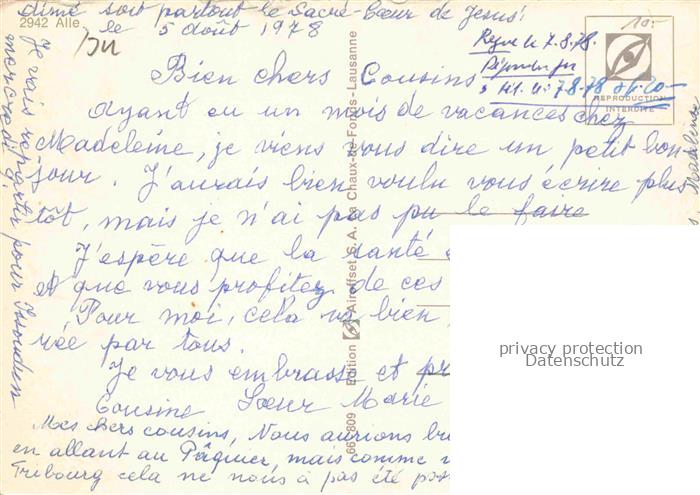 aimé soit partout le Sacré-Cœur de Jésus!
2942 Alle
JU
le 5 août 1978
10.-
Reçue le 7.8.78.
7.8.78
REPRODUCTION
INTERDITE
Bien chers Cousins
Ayant eu un mois de vacances chez
Madeleine, je viens vous dire un petit bon-
jour. J'aurais bien voulu vous écrire plus
tôt, mais je n'ai pas pu le faire
J'espère que la santé
et que vous profitez de ces
Pour moi, cela va bien
rée par tous.
Je vous embrasse et
Cousine Sœur Marie
Mes chers cousins, Nous aurions
en allant au Pâquier, mais comme
Fribourg cela ne nous a pas été
Je vais repartir pour Issoudun
mercredi 9.
667 809 Edition Airoffset S.A. La Chaux-de-Fonds - Lausanne
privacy protection
Datenschutz